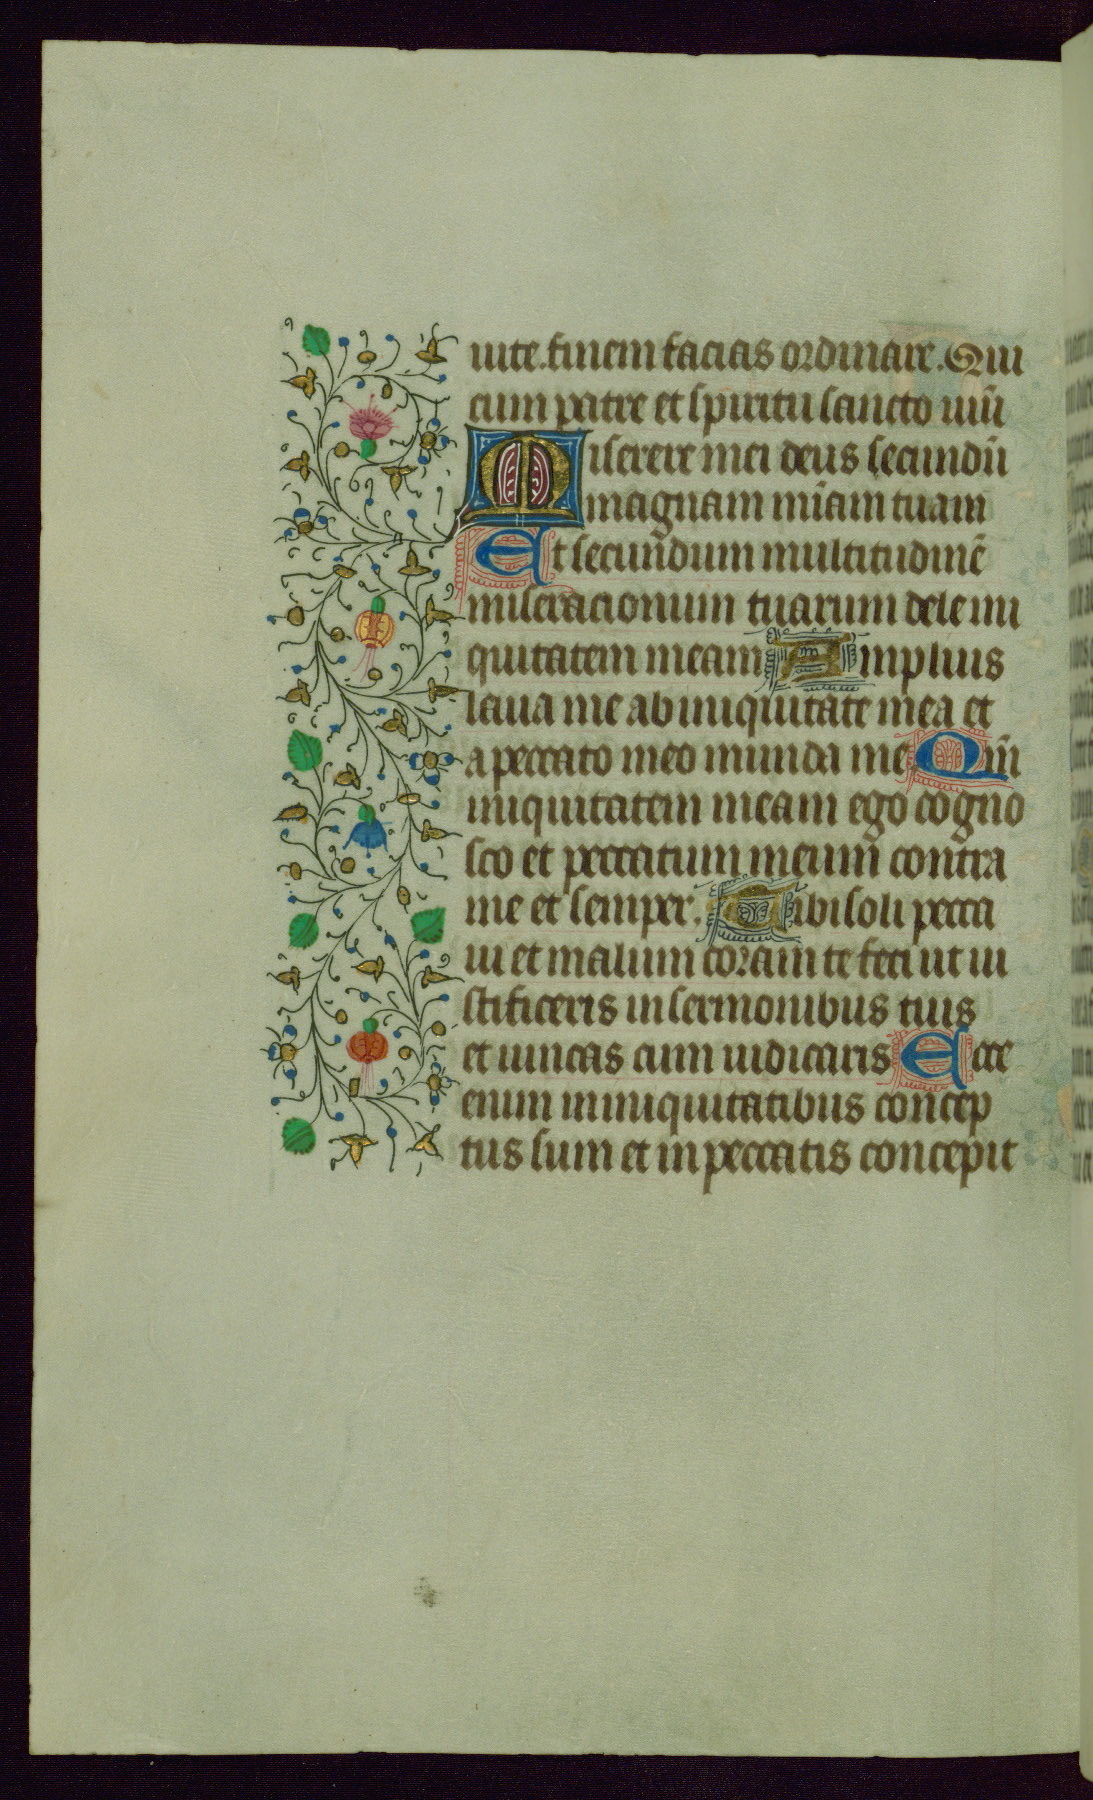 uite. finem facias ordinare. Qui
cum patre et spiritu sancto uiū
Miserere mei deus secundū
magnam mīam tuam
Et secundum multitudinē
miseracionum tuarum dele ini
quitatem meam Amplius
laua me ab iniquitate mea et
a peccato meo munda me Qm̄
iniquitatem meam ego cogno
sco et peccatum meum contra
me et semper. Tibi soli pecca
ui et malum coram te feci ut iu
stificeris in sermonibus tuis
et uincas cum iudicaris Ecce
enim in iniquitatibus concep
tus sum et in peccatis concepit